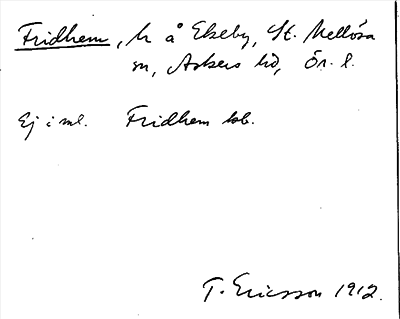 Fridhem, h å Ekeby, St. Mellösa
sn, Askers hd, Ör. l.
Ej i ml. Fridhem kb.
T. Ericsson 1912.